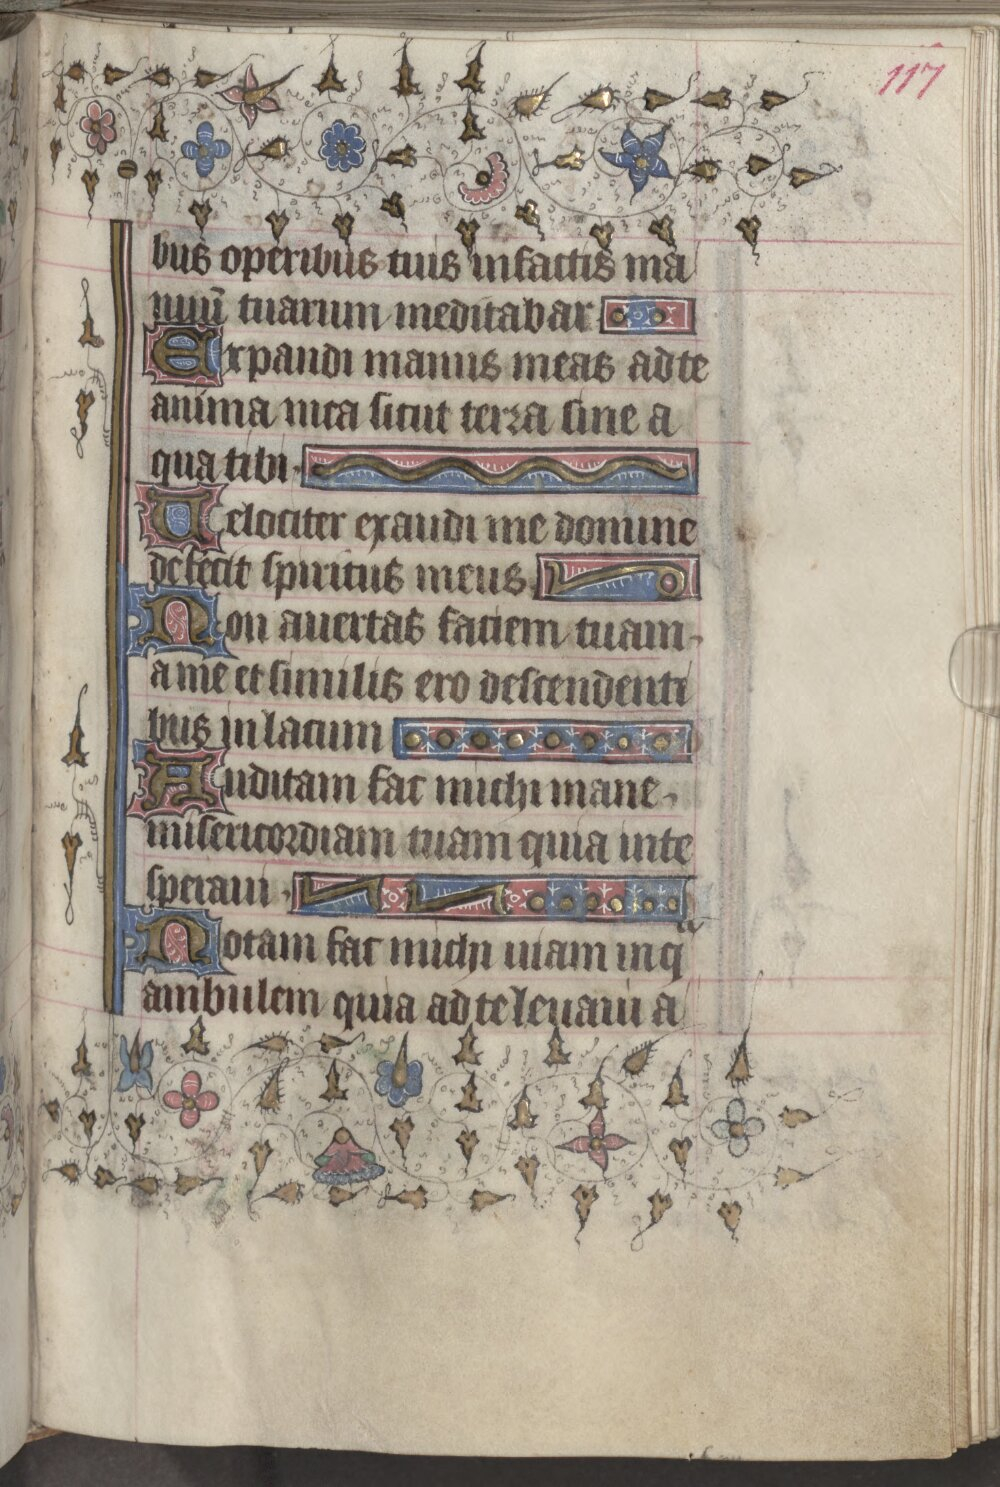 117
bus operibus tuis in factis ma
nuū tuarum meditabar
Expandi manus meas ad te
anima mea sicut terra sine a
qua tibi.
Uelociter exaudi me domine
defecit spiritus meus.
Non auertas faciem tuam
a me et similis ero descendenti
bus in lacum
Auditam fac michi mane
misericordiam tuam quia in te
speraui.
Notam fac michi uiam in qͣ
ambulem quia ad te leuaui a